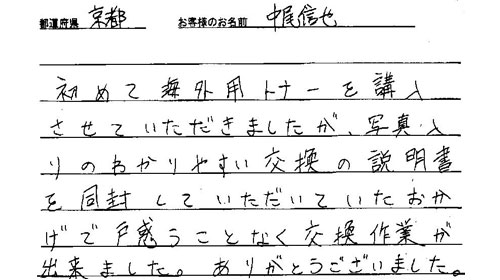 都道府県 京都 お客様のお名前 中尾信也
初めて海外用トナーを購入
させていただきましたが、写真入
りのわかりやすい交換の説明書
を同封していただいていたおか
げで戸惑うことなく交換作業が
出来ました。ありがとうございました。